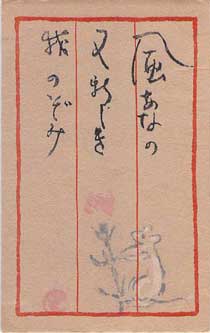 風あなの
又新しき
のぞみ